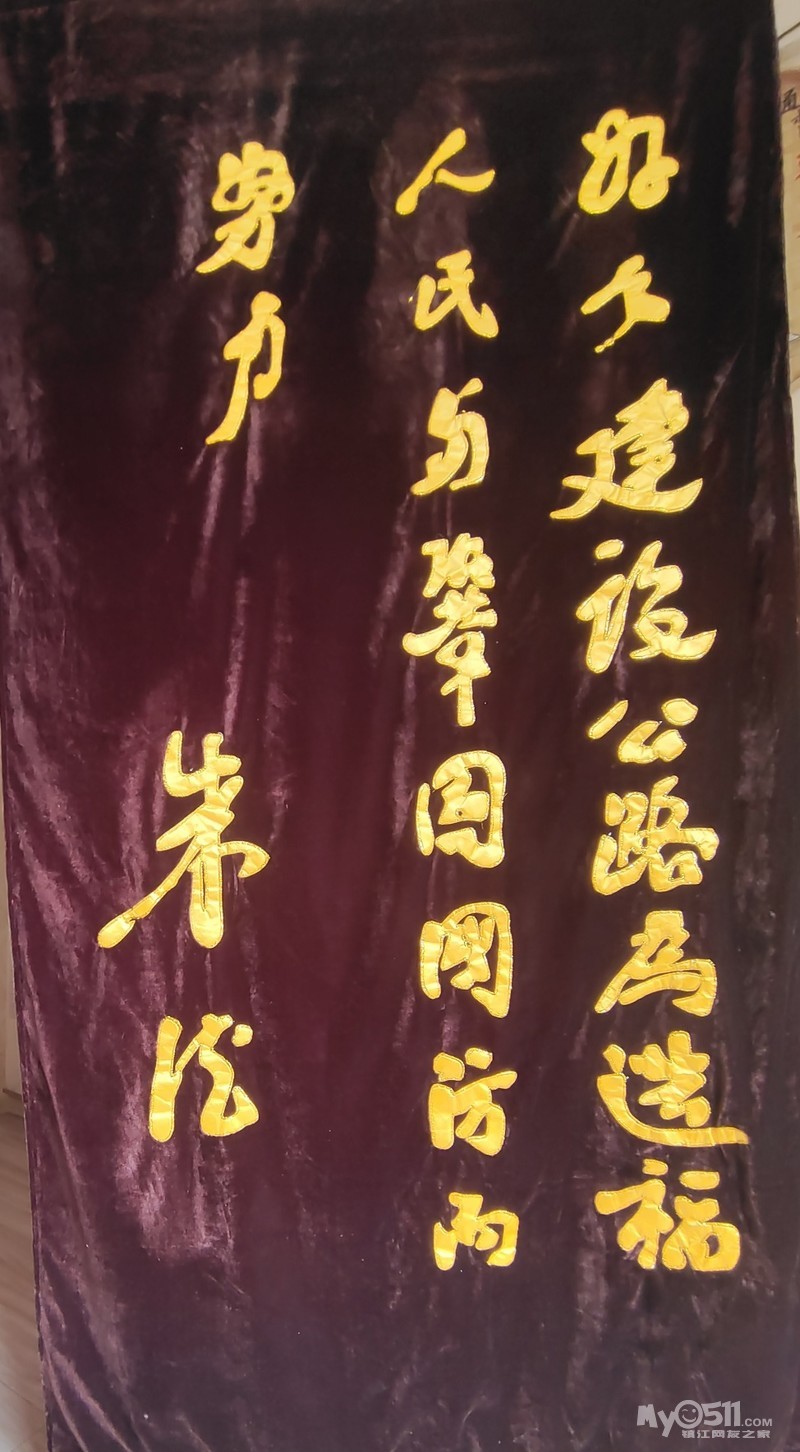 好々建设公路为造福
人民与鞏固國防而
努力
朱德
My0511.COM
镇江网友之家